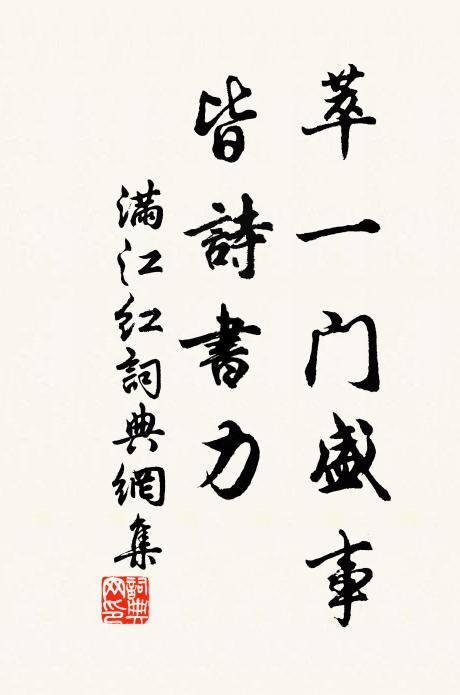 萃一门盛事
皆詩書力
满江红詞典網集
詞典网印